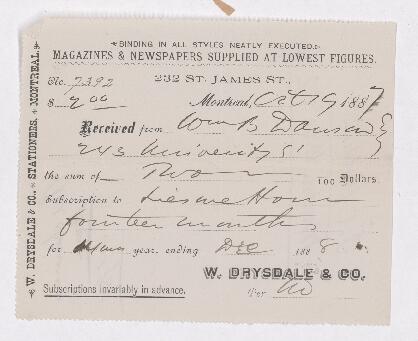 BINDING IN ALL STYLES NEATLY EXECUTED.
MAGAZINES & NEWSPAPERS SUPPLIED AT LOWEST FIGURES.
No. 7392 232 ST. JAMES ST.,
$ 2.00 Montreal, Oct 19 1887
Received from Wm B Dawson Esq
243 University St
the sum of Two 100 Dollars
Subscription to Leisure Hour
fourteen months
for year, ending Dec 1888.
W. DRYSDALE & CO.
Subscriptions invariably in advance. Per
W. DRYSDALE & CO., STATIONERS, MONTREAL.